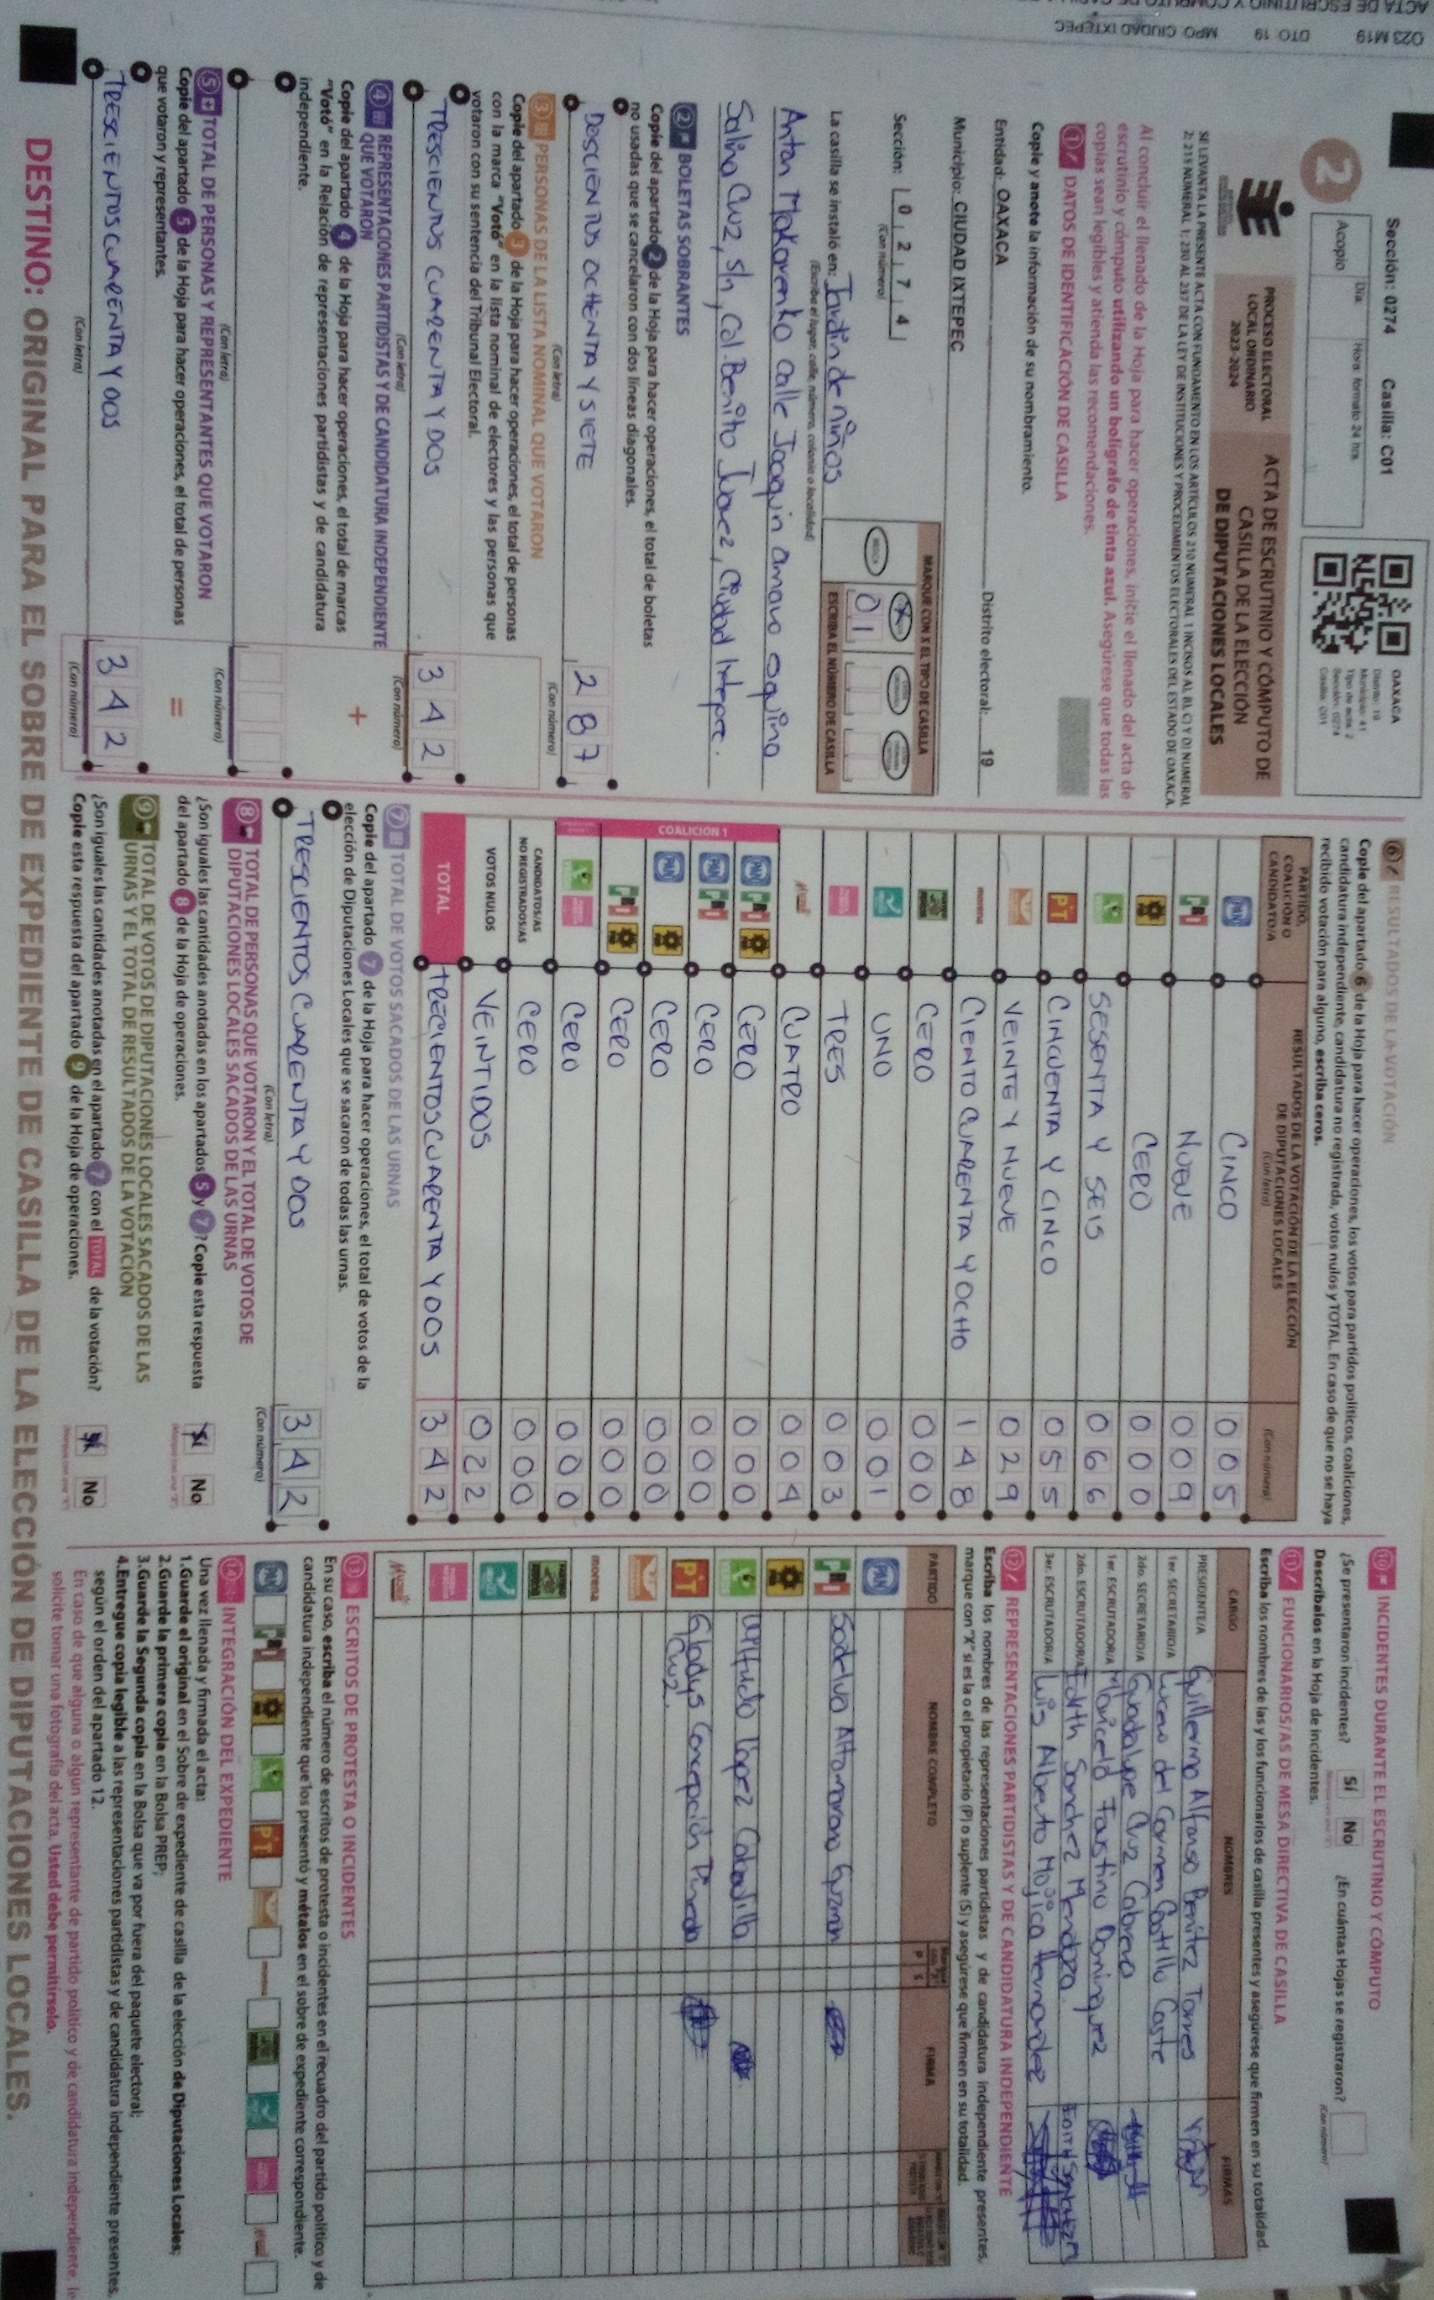 ACTA DE ESCRUTINIO Y CÓMPUTO DE CASILLA
023 M19 DTO 19 MPO CIUDAD IXTEPEC
Sección: 0274 Casilla: C01
2
Acopio
Día:
Hora: formato 24 hrs.
OAXACA
Distrito: 19
Municipio: 41
Tipo de acta: 2
Sección: 0274
Casilla: C01
PROCESO ELECTORAL
LOCAL ORDINARIO
2023-2024
ACTA DE ESCRUTINIO Y CÓMPUTO DE
CASILLA DE LA ELECCIÓN
DE DIPUTACIONES LOCALES
SE LEVANTA LA PRESENTE ACTA CON FUNDAMENTO EN LOS ARTÍCULOS 210 NUMERAL 1 INCISOS A), B), C) Y D) NUMERAL
2; 235 NUMERAL 1; 230 AL 237 DE LA LEY DE INSTITUCIONES Y PROCEDIMIENTOS ELECTORALES DEL ESTADO DE OAXACA.
Al concluir el llenado de la Hoja para hacer operaciones, inicie el llenado del acta de
escrutinio y cómputo utilizando un bolígrafo de tinta azul. Asegúrese que todas las
copias sean legibles y atienda las recomendaciones.
1 DATOS DE IDENTIFICACIÓN DE CASILLA
Copie y anote la información de su nombramiento.
Entidad: OAXACA Distrito electoral: 19
Municipio: CIUDAD IXTEPEC
Sección: 0 2 7 4
(Con número)
MARQUE CON X EL TIPO DE CASILLA
X
01
ESCRIBA EL NÚMERO DE CASILLA
La casilla se instaló en: Jardin de niños
(Escriba el lugar, calle, número, colonia o localidad)
Anton Makarenko calle Joaquin amaro esquina
Salina Cruz, s/n, Col. Benito Juarez, Ciudad Ixtepec.
2 BOLETAS SOBRANTES
Copie del apartado 2 de la Hoja para hacer operaciones, el total de boletas
no usadas que se cancelaron con dos líneas diagonales.
DOSCIENTOS OCHENTA Y SIETE 2 8 7
(Con letra) (Con número)
3 PERSONAS DE LA LISTA NOMINAL QUE VOTARON
Copie del apartado 3 de la Hoja para hacer operaciones, el total de personas
con la marca "Votó" en la lista nominal de electores y las personas que
votaron con su sentencia del Tribunal Electoral.
TRESCIENTOS CUARENTA Y DOS 3 4 2
(Con letra) (Con número)
4 REPRESENTACIONES PARTIDISTAS Y DE CANDIDATURA INDEPENDIENTE
QUE VOTARON
Copie del apartado 4 de la Hoja para hacer operaciones, el total de marcas
"Votó" en la Relación de representaciones partidistas y de candidatura
independiente.
+
(Con letra) (Con número)
5 TOTAL DE PERSONAS Y REPRESENTANTES QUE VOTARON
Copie del apartado 5 de la Hoja para hacer operaciones, el total de personas
que votaron y representantes.
=
TRESCIENTOS CUARENTA Y DOS 3 4 2
(Con letra) (Con número)
6 RESULTADOS DE LA VOTACIÓN
Copie del apartado 6 de la Hoja para hacer operaciones, los votos para partidos políticos, coaliciones,
candidatura independiente, candidatura no registrada, votos nulos y TOTAL. En caso de que no se haya
recibido votación para alguno, escriba ceros.
PARTIDO, COALICIÓN O CANDIDATO/A
RESULTADOS DE LA VOTACIÓN DE LA ELECCIÓN DE DIPUTACIONES LOCALES
(Con letra) (Con número)
PAN CINCO 005
PRI NUEVE 009
CERO 000
SESENTA Y SEIS 066
PT CINCUENTA Y CINCO 055
VEINTE Y NUEVE 029
morena CIENTO CUARENTA Y OCHO 148
CERO 000
UNO 001
TRES 003
CUATRO 004
COALICIÓN 1
PAN PRI CERO 000
PAN PRI CERO 000
PAN CERO 000
PRI CERO 000
CERO 000
CANDIDATOS/AS
NO REGISTRADOS/AS CERO 000
VOTOS NULOS VEINTIDOS 022
TOTAL TRECIENTOS CUARENTA Y DOS 342
7 TOTAL DE VOTOS SACADOS DE LAS URNAS
Copie del apartado 7 de la Hoja para hacer operaciones, el total de votos de la
elección de Diputaciones Locales que se sacaron de todas las urnas.
TRESCIENTOS CUARENTA Y DOS 3 4 2
(Con letra) (Con número)
8 TOTAL DE PERSONAS QUE VOTARON Y EL TOTAL DE VOTOS DE
DIPUTACIONES LOCALES SACADOS DE LAS URNAS
¿Son iguales las cantidades anotadas en los apartados 5 y 7? Copie esta respuesta
del apartado 8 de la Hoja de operaciones.
Sí No
9 TOTAL DE VOTOS DE DIPUTACIONES LOCALES SACADOS DE LAS
URNAS Y EL TOTAL DE RESULTADOS DE LA VOTACIÓN
¿Son iguales las cantidades anotadas en el apartado 7 con el TOTAL de la votación?
Copie esta respuesta del apartado 9 de la Hoja de operaciones.
Sí No
10 INCIDENTES DURANTE EL ESCRUTINIO Y CÓMPUTO
¿Se presentaron incidentes? Sí No ¿En cuántas Hojas se registraron?
Descríbalos en la Hoja de incidentes. (Con número)
11 FUNCIONARIOS/AS DE MESA DIRECTIVA DE CASILLA
Escriba los nombres de las y los funcionarios de casilla presentes y asegúrese que firmen en su totalidad.
CARGO NOMBRES FIRMAS
PRESIDENTE/A Guillermo Alfonso Benítez Torres
1er. SECRETARIO/A Lucero del Carmen Castillo Caste
2do. SECRETARIO/A Guadalupe Cruz Cabrera
1er. ESCRUTADOR/A Maricela Faustino Dominguez
2do. ESCRUTADOR/A Edith Sanchez Mendoza.
3er. ESCRUTADOR/A Luis Alberto Mojica Hernandez
12 REPRESENTACIONES PARTIDISTAS Y DE CANDIDATURA INDEPENDIENTE
Escriba los nombres de las representaciones partidistas y de candidatura independiente presentes,
marque con "X" si es la o el propietario (P) o suplente (S) y asegúrese que firmen en su totalidad.
PARTIDO NOMBRE COMPLETO P S FIRMA
PAN
PRI Altamirano Guzman
Lopez Cabadilla
PT Gladys Concepción Pineda
Cruz.
morena
13 ESCRITOS DE PROTESTA O INCIDENTES
En su caso, escriba el número de escritos de protesta o incidentes en el recuadro del partido político y de
candidatura independiente que los presentó y métalos en el sobre de expediente correspondiente.
PAN PRI PT morena
14 INTEGRACIÓN DEL EXPEDIENTE
Una vez llenada y firmada el acta:
1.Guarde el original en el Sobre de expediente de casilla de la elección de Diputaciones Locales;
2.Guarde la primera copia en la Bolsa PREP;
3.Guarde la Segunda copia en la Bolsa que va por fuera del paquete electoral;
4.Entregue copia legible a las representaciones partidistas y de candidatura independiente presentes,
según el orden del apartado 12.
En caso de que alguna o algún representante de partido político y de candidatura independiente, le
solicite tomar una fotografía del acta. Usted debe permitírselo.
DESTINO: ORIGINAL PARA EL SOBRE DE EXPEDIENTE DE CASILLA DE LA ELECCIÓN DE DIPUTACIONES LOCALES.